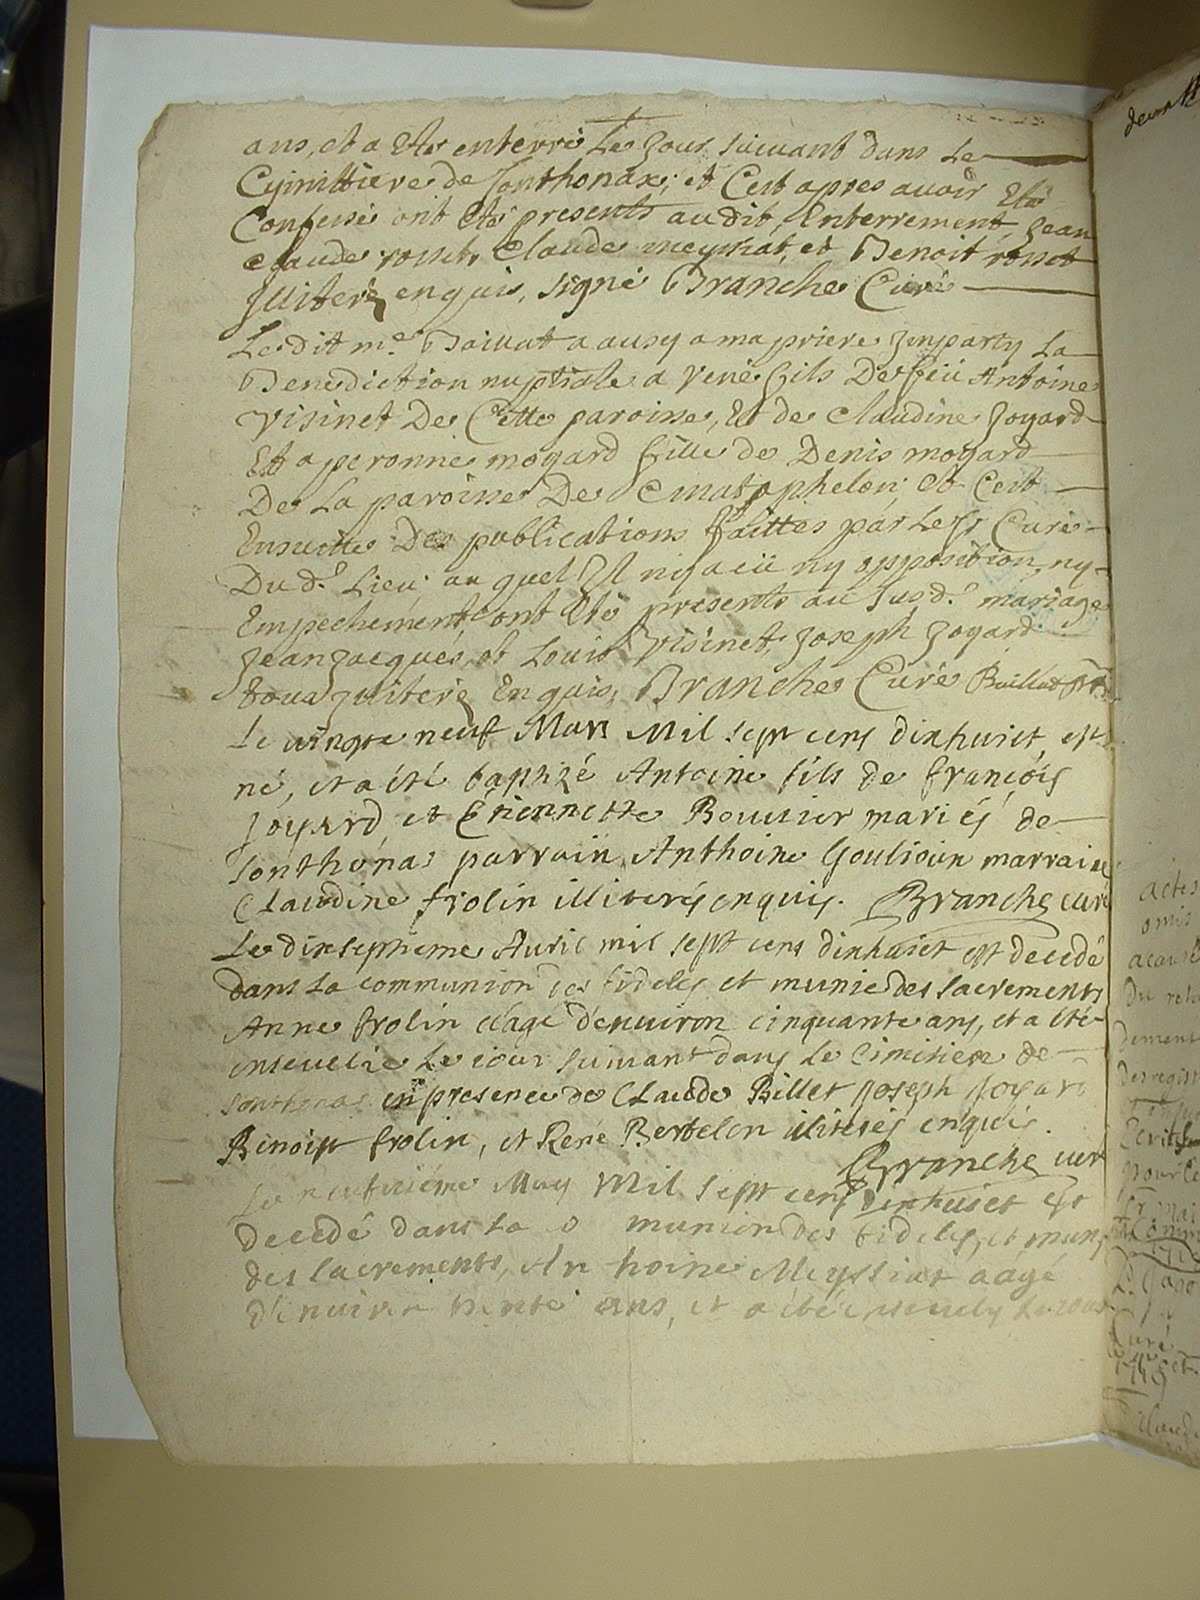 ans, et a Eté enterré Le Jour suivant dans Le
Cyimittiere de Sonthonax; et C'est apres avoir Eté
Confessé ont Eté presents audit Enterrement, Jean
claude rosset, claude meyniat, et Benoit rosset
Jlliteré enquis, signé Branche Curé
Le dit mr. Baillat a ausy a ma priere Jmparty La
Benediction nuptiale a rené fils De feü Antoine
Visinet De Cette paroisse, Et de claudine Joyard
Et a peronne moyard fille de Denis moyard
De La paroisse De mataphelon; et C'est
Ensuitte Des publications faittes par Le sr Curé
Du d. Lieu auquel Il n'y a eü ny opposition, ny
Empechement, ont Eté presents au Susd. mariage
Jean Jacques, et Louis Visinet, Joseph Joyard
tous Jlliteré Enquis, Branche Curé Baillat
Le vingte neuf Mars Mil sept cens dixhuict, est
né, et a été baptizé Antoine fils de françois
Joyard et Etiennette Bouvier mariés de
Sonthonas parrain Anthoine Goulioun marraine
Claudine frolin illiterés enquis. Branche curé
Le dixseptieme Avril mil sept cens dixhuict est decedé
dans La communion des fideles et munie des sacrements
Anne frolin eagé d'environ cinquante ans, et a été
ensevelie Le jour suivant dans Le cimitiere de
sonthonas en presence de Claude Billet Joseph Joyard
Benoist frolin, et René Bertelon iliterés enquis.
Branche curé
Le neufvieme May Mil sept cens dixhuict Est
decedé dans La munion des fideles, et muny
des sacrements, An hoine Meyssiat aagé
d'environ trente ans, et a été ensevely Le jour
devant
actes
omis
a cause
Du